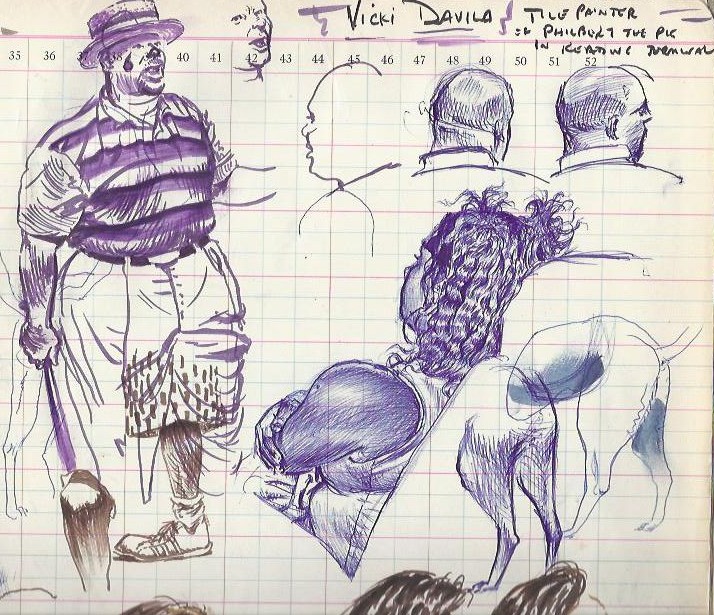 Vicki DAVILA } TILE PAINTER
OF PHILBERT THE PIG
IN READING TERMINAL
35 36 40 41 42 43 44 45 46 47 48 49 50 51 52